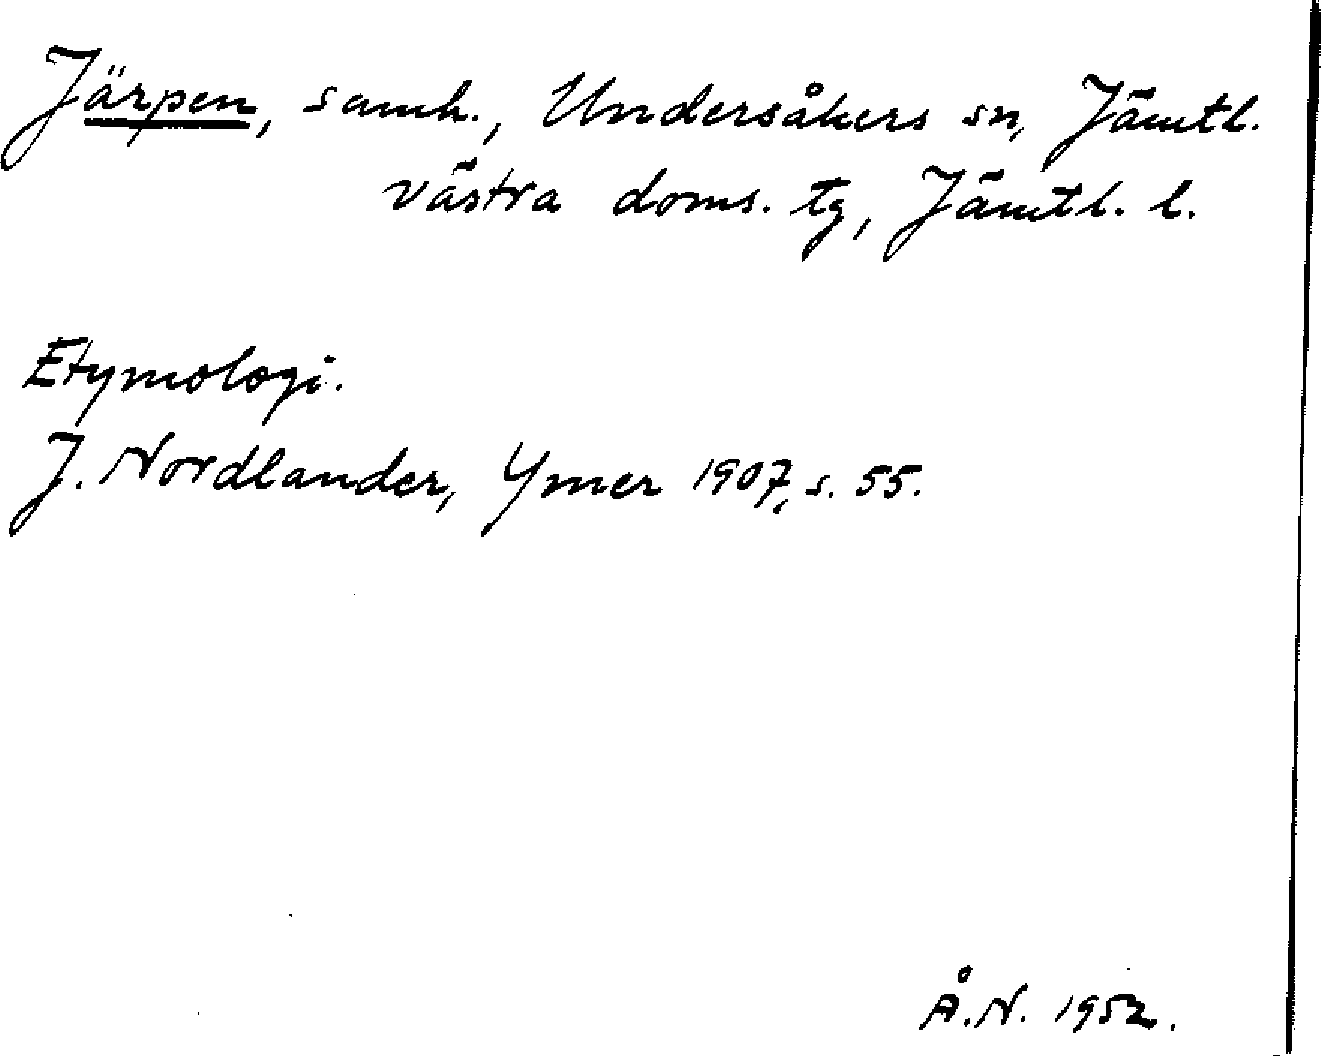 Järpen, samh., Undersåkers sn, Jämtl.
västra doms. tg, Jämtl. l.
Etymologi.
J. Nordlander, Ymer 1907, s. 55.
Å.N. 1952.